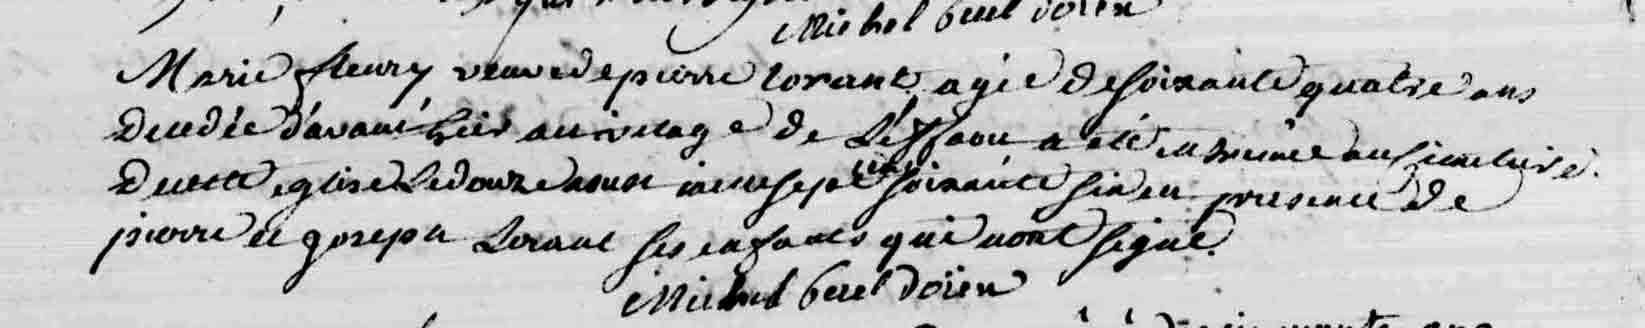 Michel bertel doïen
Marie fleury veuve de pierre lorant agée de soixante quatre ans
decedée d'avant hier au village de a eté inhumée au simetiere
de cette eglise le douze aoust mil sept cent soixante six en presence de
pierre et joseph Lorant ses enfants qui n'ont signé.
Michel bertel doïen